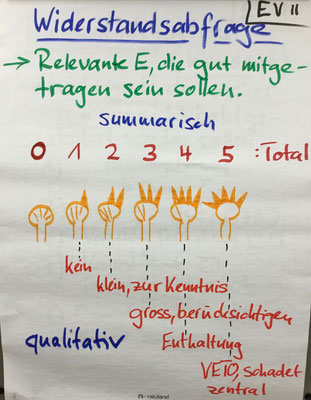 EV 11
Widerstandsabfrage
→ Relevante E, die gut mitge-
tragen sein sollen.
summarisch
0 1 2 3 4 5 : Total
kein
klein, zur Kenntnis
gross, berücksichtigen
qualitativ Enthaltung
VETO, schadet
zentral
neuland